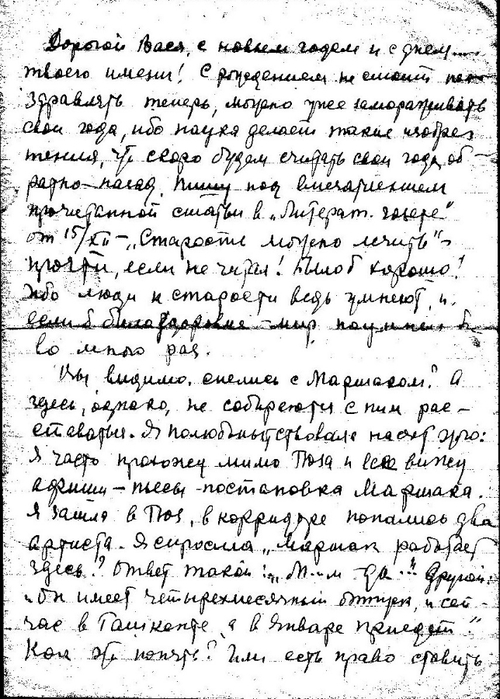 Дорогой Вася, с новым годом и с днем....
твоего имени! С рождением не стоит по-
здравлять теперь, можно уже замораживать
свои года, ибо наука делает такие изобре
тения, что скоро будем считать свои года об
ратно-назад. Пишу под впечатлением
прочитанной статьи в „Литерат. газете"
от 15/XII – „Старость можно лечить" –
прочти, если не читал! Было б хорошо!
Ибо люди к старости ведь умнеют, и
если б было здоровье – мир поумнел б
во много раз.
Вы видимо спелись с Маршаком? А
здесь, однако, не собираются с ним рас-
ставаться. Я полюбопытствовала насчет этого:
Я часто прохожу мимо Тюза и все вижу
афиши – пьесы – постановка Маршака.
Я зашла в Тюз, в корридоре попались два
артиста. Я спросила „Маршак работает
здесь"? Ответ такой: „М..м да.." Другой:
„Он имеет четырехмесячный отпуск, и сей-
час в Ташкенте, а в Январе приедет."
Как это понять? Или есть право ставить